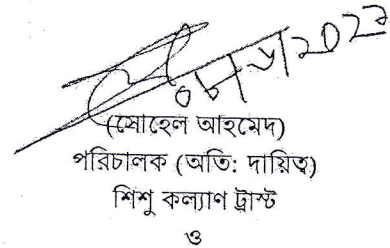 (সোহেল আহমেদ)
পরিচালক (অতি: দায়িত্ব)
শিশু কল্যাণ ট্রাস্ট
ও